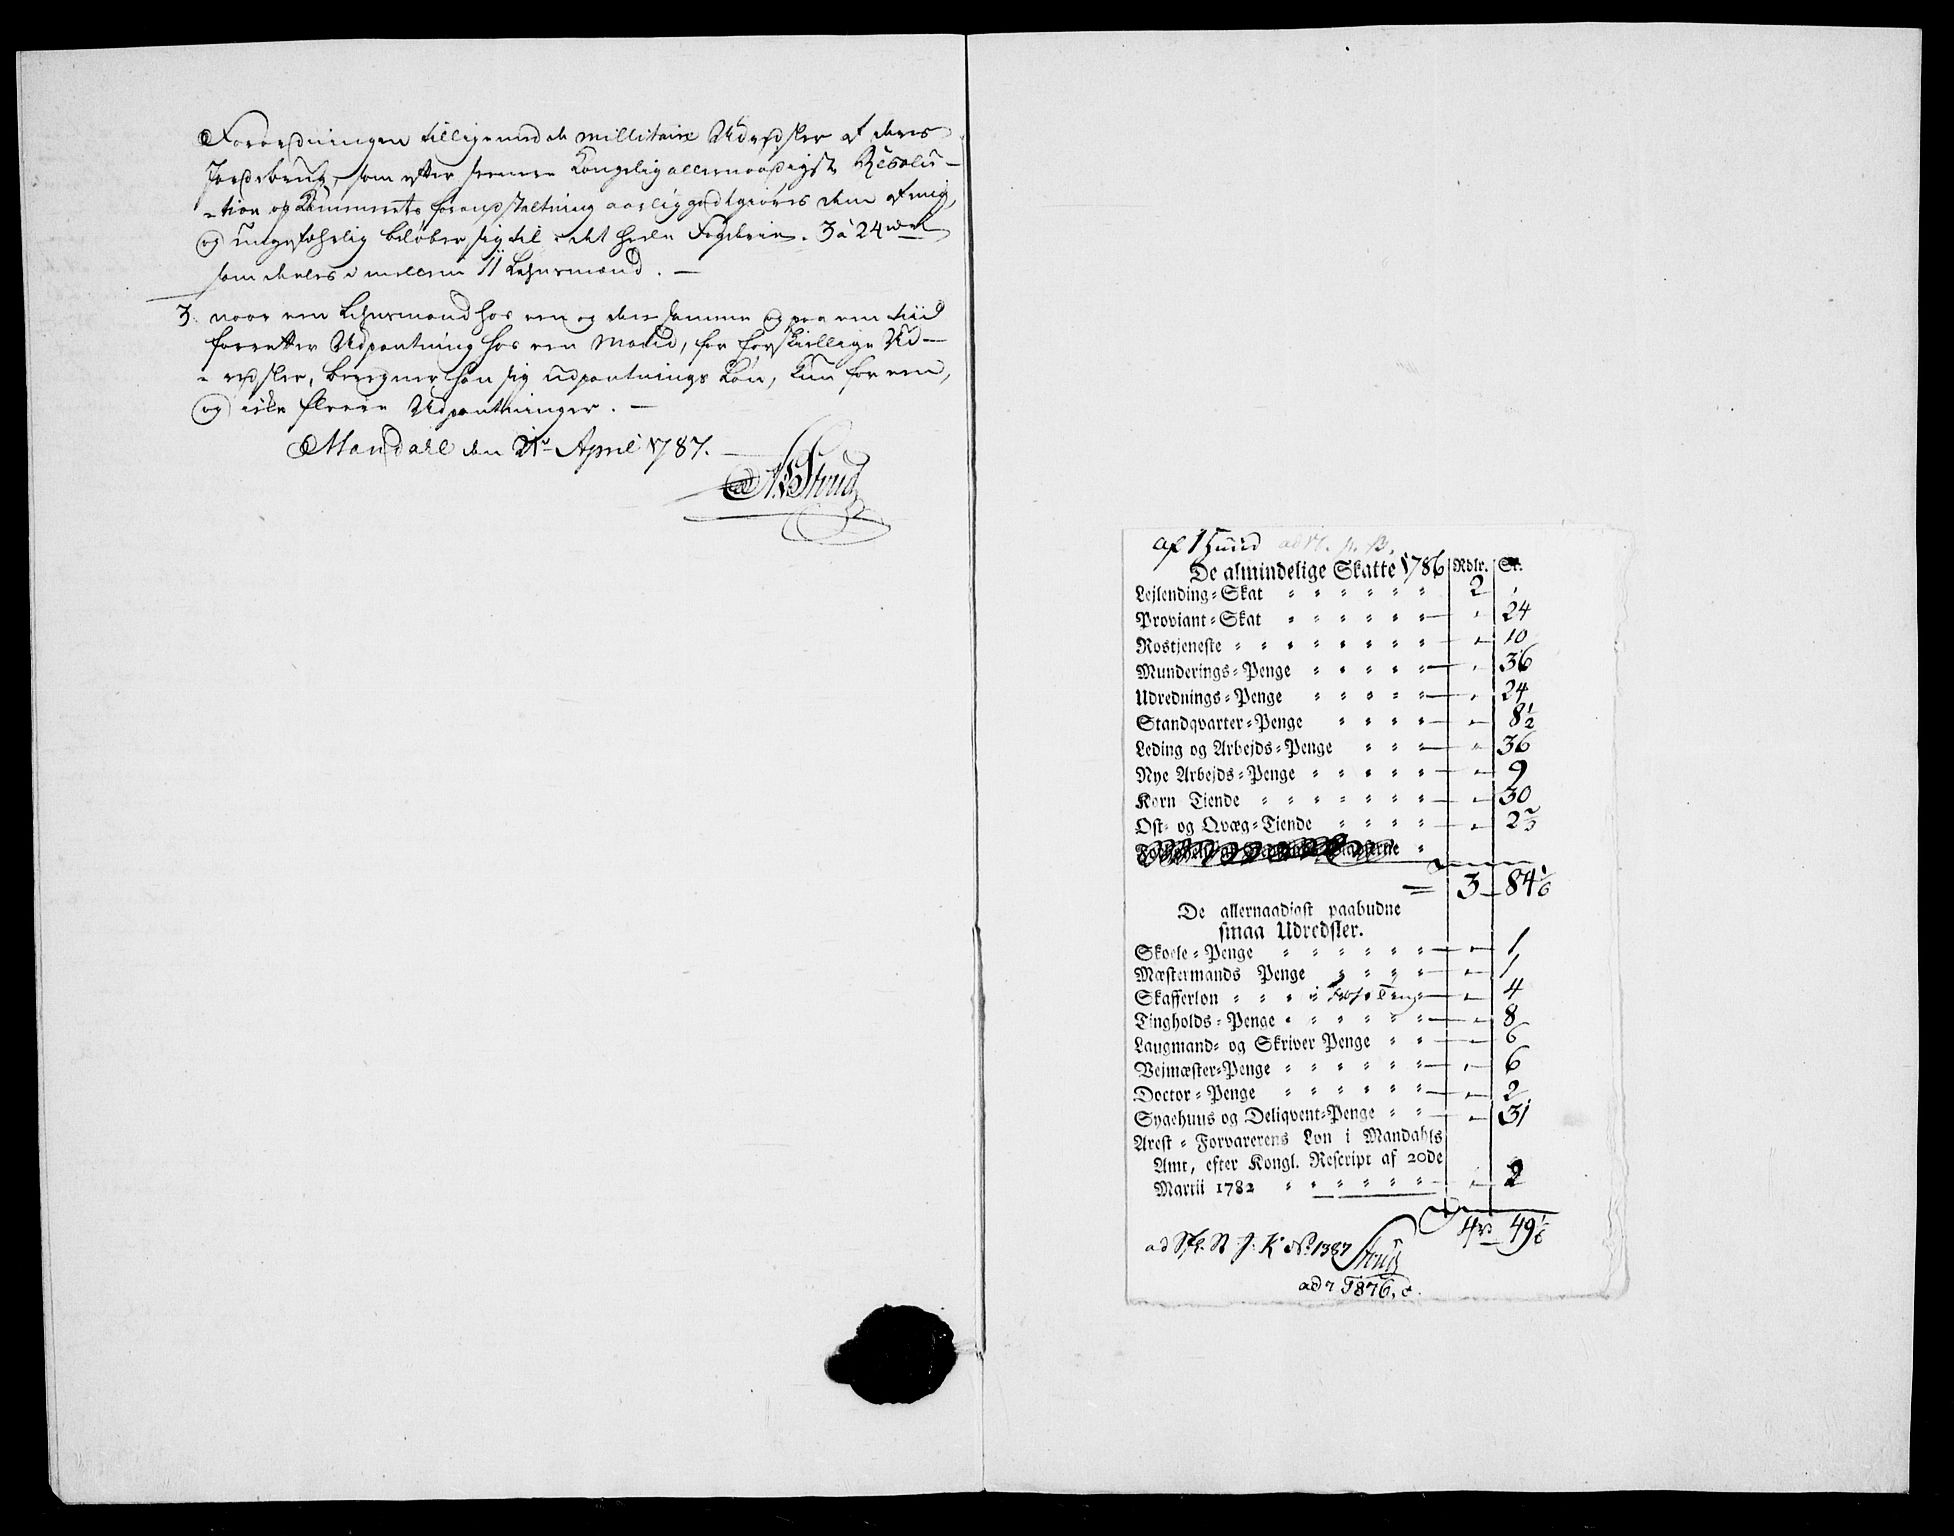 Forordningen tilligemed de millitaire Udredsler af deres
Jordebrug, som efter senere Kongelig allernaadigste Resolu-
-tion og Kammerets foranstaltning aarlig godtgiøres dem af mig,
og ungefæhrlig beløber sig til i det heele Fogderie. 3 à 24
som deeles imellem 11 Lehnsmænd. —
3. naar een Lehnsmand hos een og den samme og paa een tiid
foretter Udpantning hos een Mand, for forskiellige Ud-
-redsler, beregner han sig udpantnings Løn, kun for een,
og icke fleere Udpantninger. —
Mandahl den April 1787.
Strud
af 1 Huud
De almindelige Skatte 1786 Rdlr. St.
Lejlending-Skat 2
Proviant-Skat 24
Rostjeneste 10
Munderings-Penge 36
Udrednings-Penge 24
Standqvarter-Penge 8½
Leding og Arbejds-Penge 36
Nye Arbejds-Penge 9
Korn Tiende 30
Ost- og Qvæg-Tiende 2⅔
3 84⅙
De allernaadigst paabudne
smaa Udredsler.
Skoele-Penge 1
Mæstermands Penge 1
Skafferløn 4
Tingholds-Penge 8
Laugmand- og Skriver Penge 6
Vejmæster-Penge 6
Doctor-Penge 2
Sygehuus og Deliqvent-Penge 31
Arest-Forvarerens Løn i Mandahls
Amt, efter Kongl. Rescript af 20de
Martii 1782 2
4 49⅙
ad No 1387 Strud
ad 1876, c.